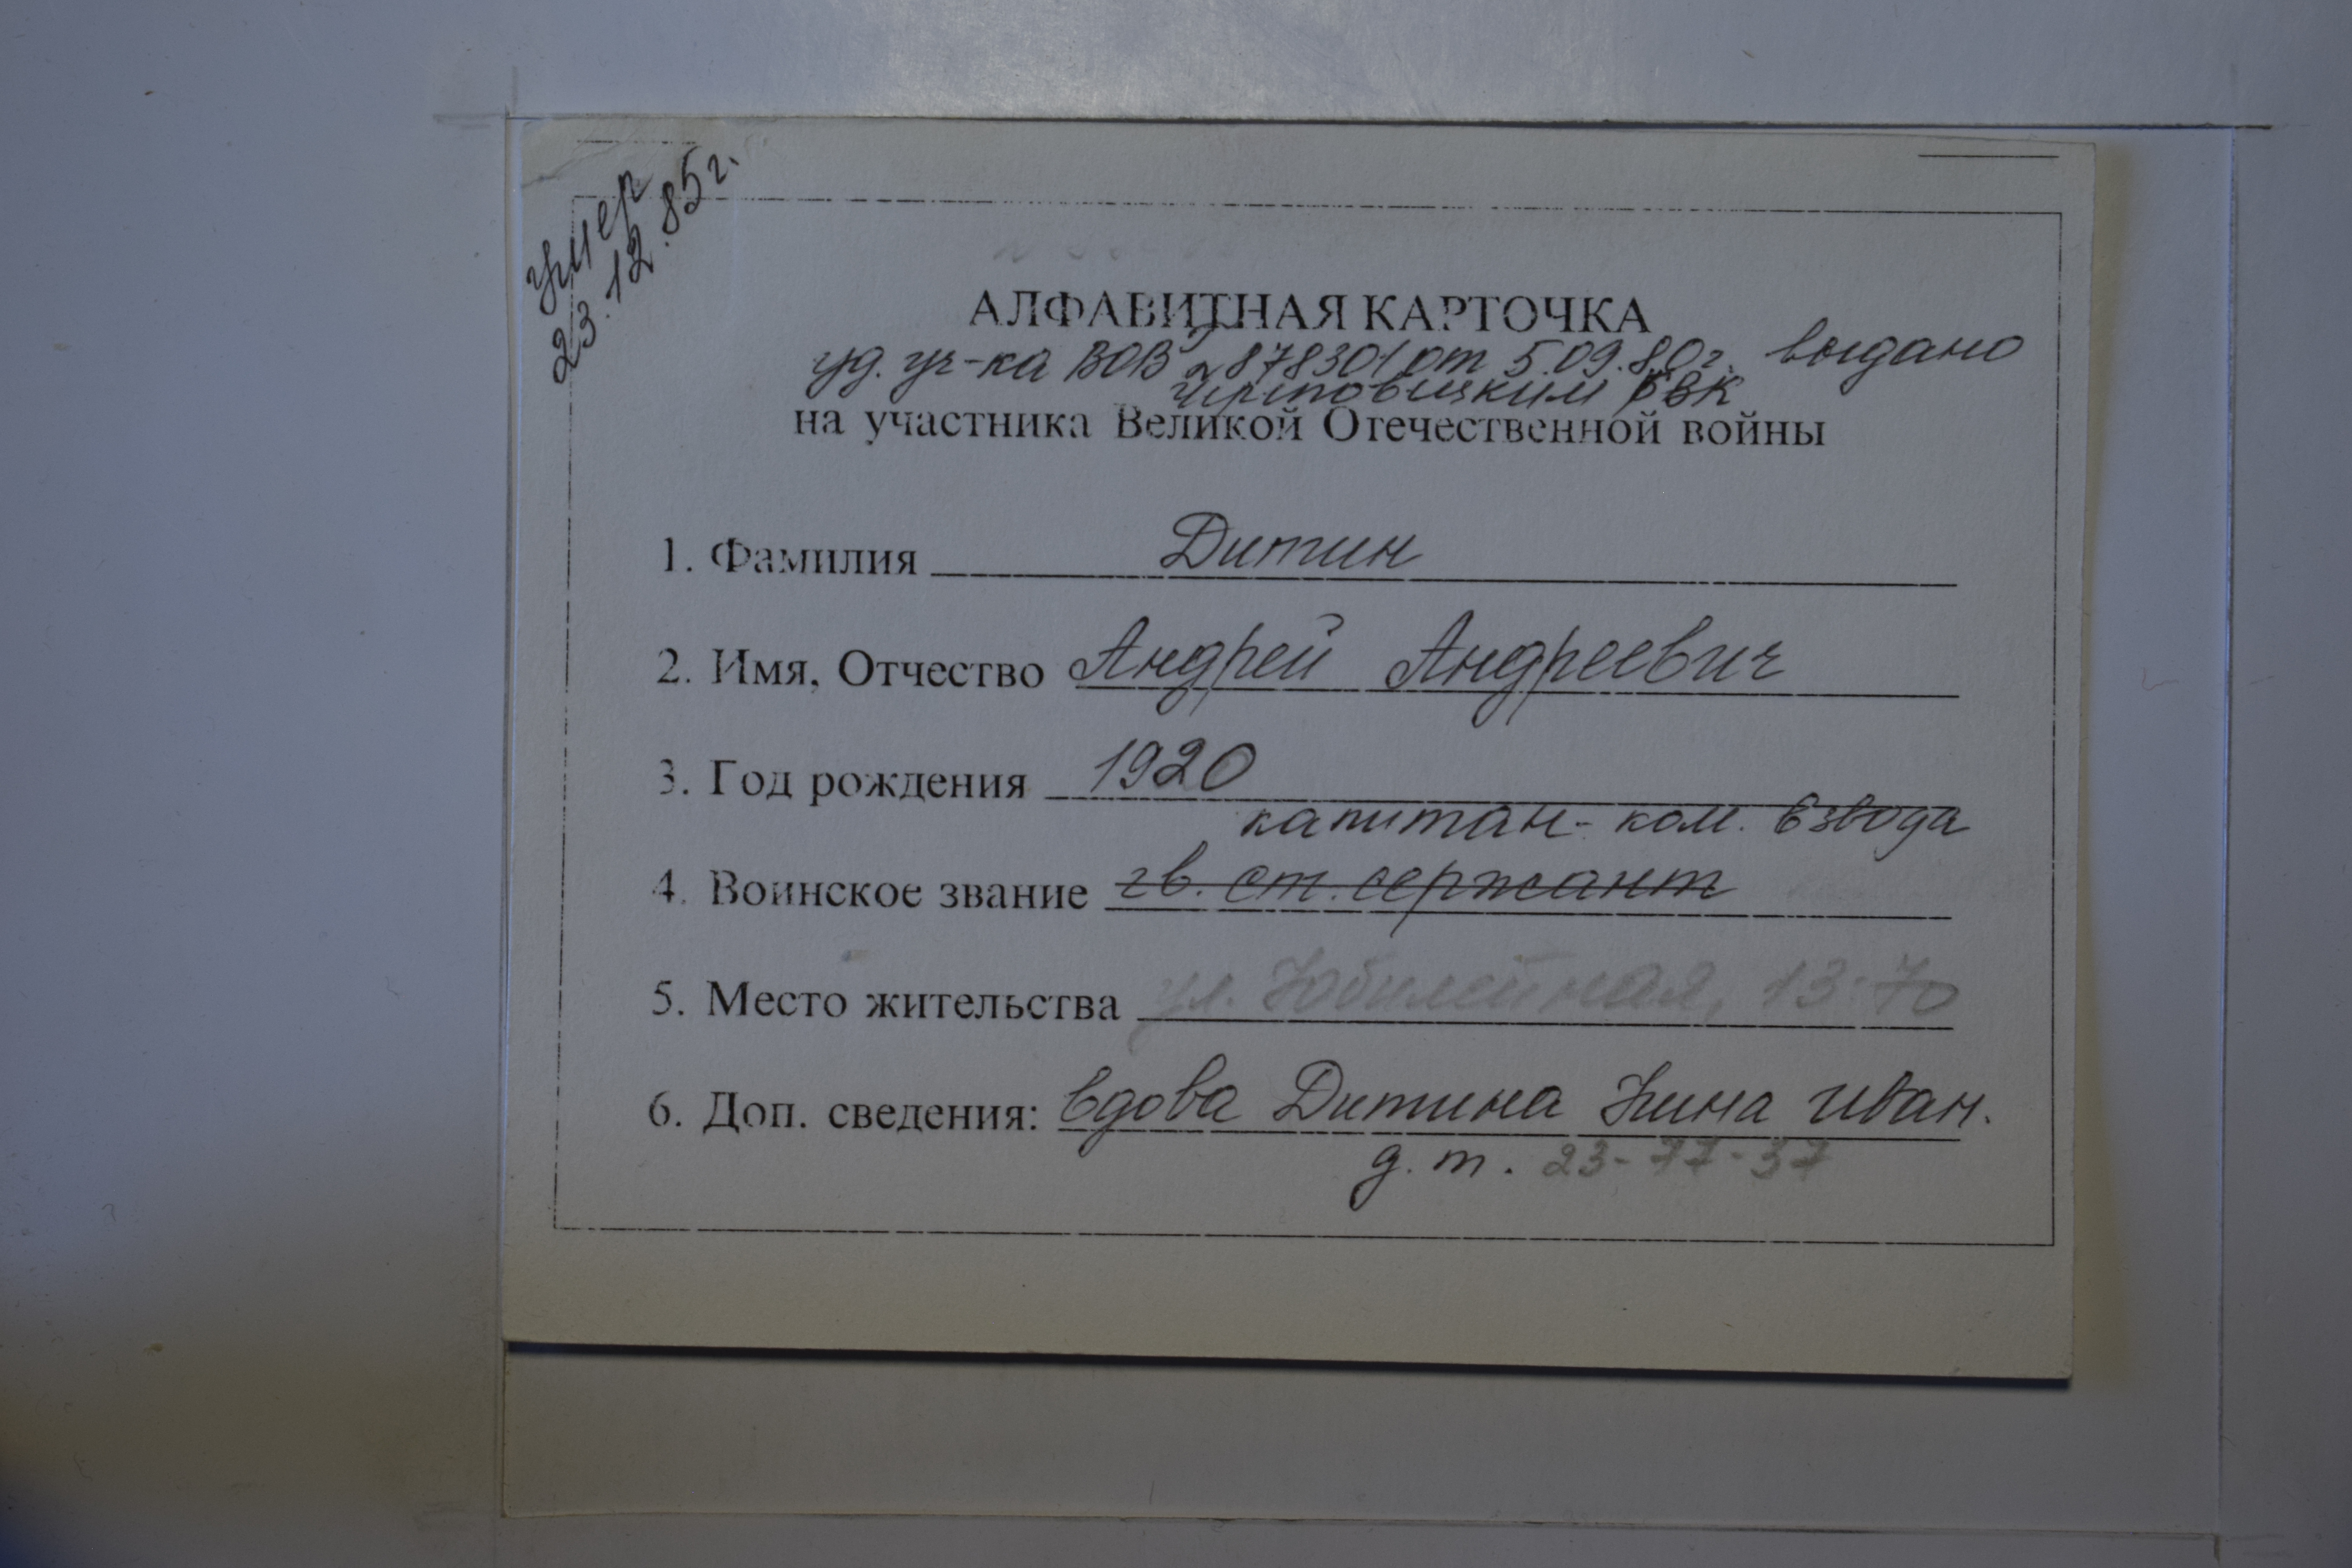 умер
23.12.85г.
АЛФАВИТНАЯ КАРТОЧКА
уд. уч-ка ВОВ 878301 от 5.09.80г. выдано
РВК
на участника Великой Отечественной войны
1. Фамилия Дитин
2. Имя, Отчество Андрей Андреевич
3. Год рождения 1920
капитан- ком. взвода
4. Воинское звание гв. ст. сержант
5. Место жительства ул. Юбилейная, 13-70
6. Доп. сведения: вдова Дитина Нина Иван.
д. т. 23-77-37